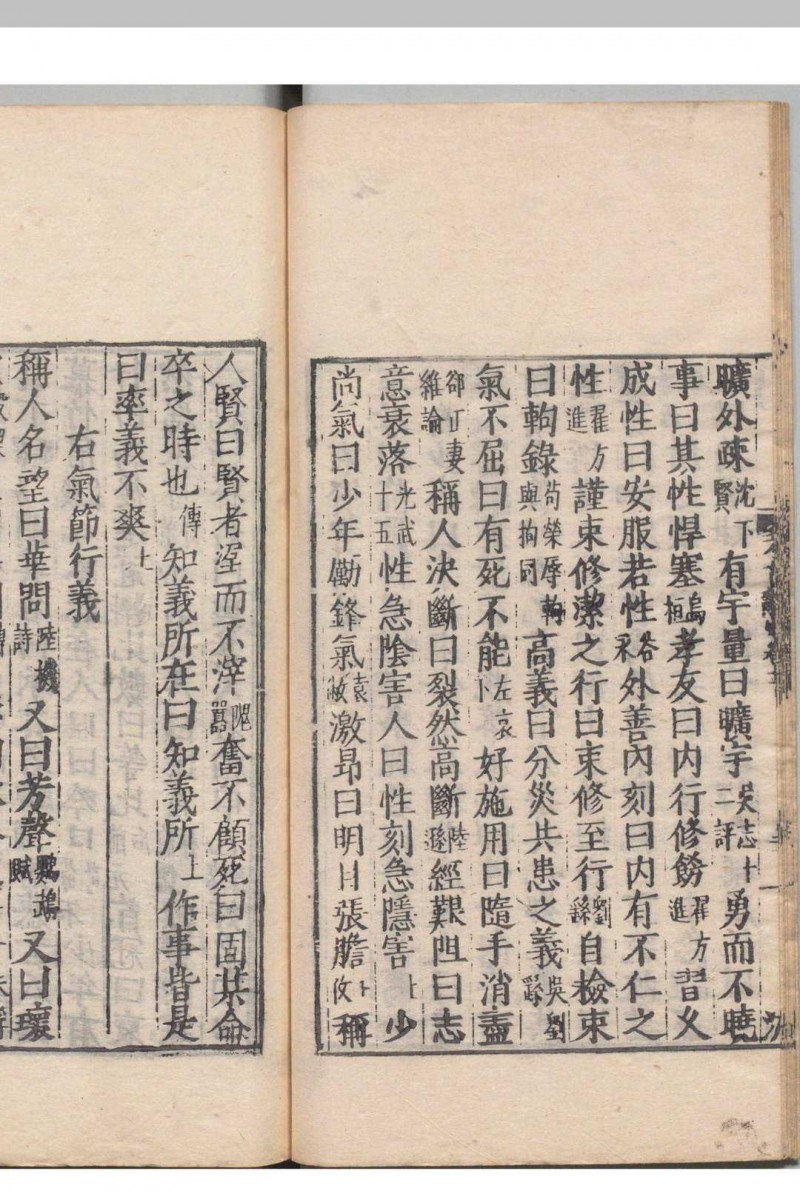 曠外疎沈賢下有宇量曰曠宇吴志十二評勇而不曉
事曰其性悍塞烏桓孝友曰内行修飭翟方進習乆
成性曰安服若性各外善内刻曰内有不仁之
性翟方進謹束修潔之行曰束修至行劉繇自檢束
曰軥錄荀榮辱軥與拘同高義曰分災共患之義吳劉繇
氣不屈曰有死不能左哀卜好施用曰隨手消盡
妻雜論稱人決斷曰裂然高斷陸遜經艱阻曰志
意衰落光武十五性急陰害人曰性刻急隱害上少
尚氣曰少年勵鋒氣袁激昂曰明目張膽稱
人賢曰賢者涅而不滓隗囂奮不顧死曰固其命
卒之時也傳知義所在曰知義所上作事皆是
曰率義不爽上
右氣節行義
稱人名望曰華問陸機詩又曰芳聲鸚鵡賦又曰瓌